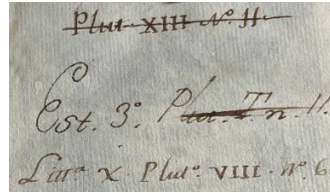 Plut XIII Nº. 11.
Est. 3º. Plut. I n. 11.
Linª X Plutº. VIII. nº. 6